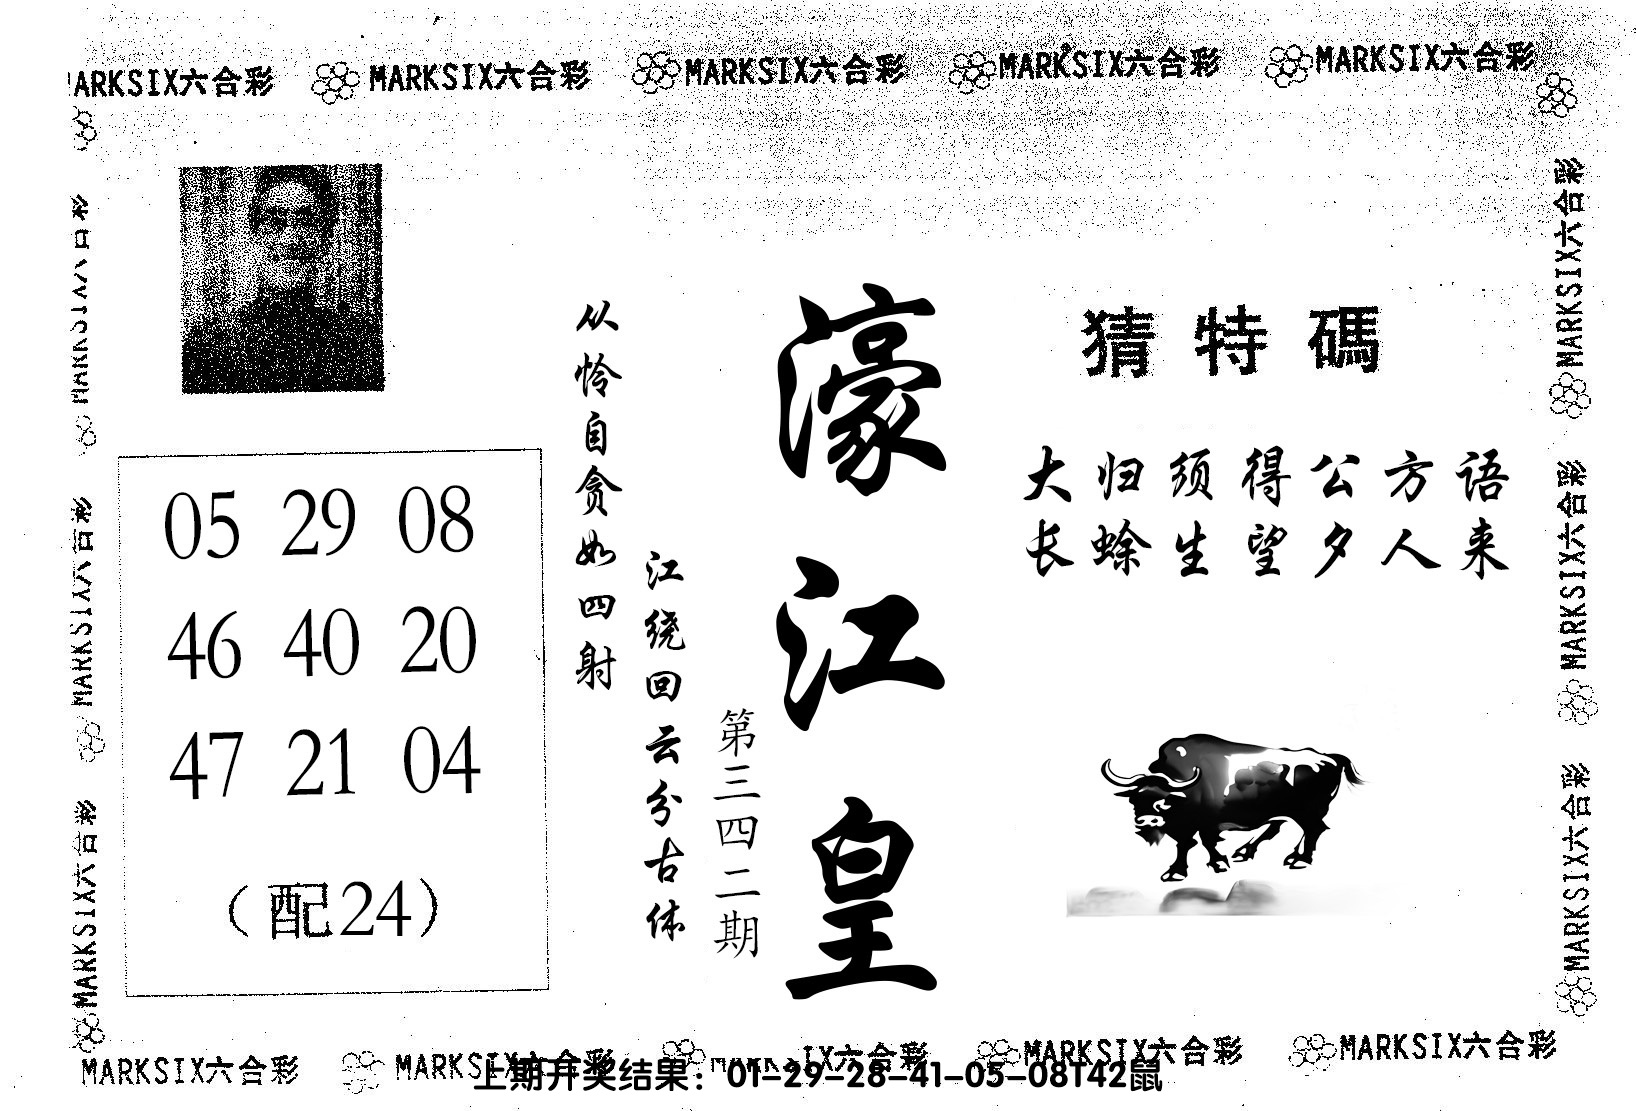 MARKSIX六合彩 MARKSIX六合彩 MARKSIX六合彩 MARKSIX六合彩
猜特碼
大归须得公方语
长蜍生望夕人来
濠江皇
第三四二期
从怜自贪如四射
江绕回云分古体
05 29 08
46 40 20
47 21 04
（配24）
MARKSIX六合彩
MARKSIX六合彩
MARKSIX六合彩
MARKSIX六合彩
MARKSIX六合彩
MARKSIX六合彩 MARKSIX六合彩 MARKSIX六合彩 MARKSIX六合彩
上期开奖结果：01-29-28-41-05-08T42鼠